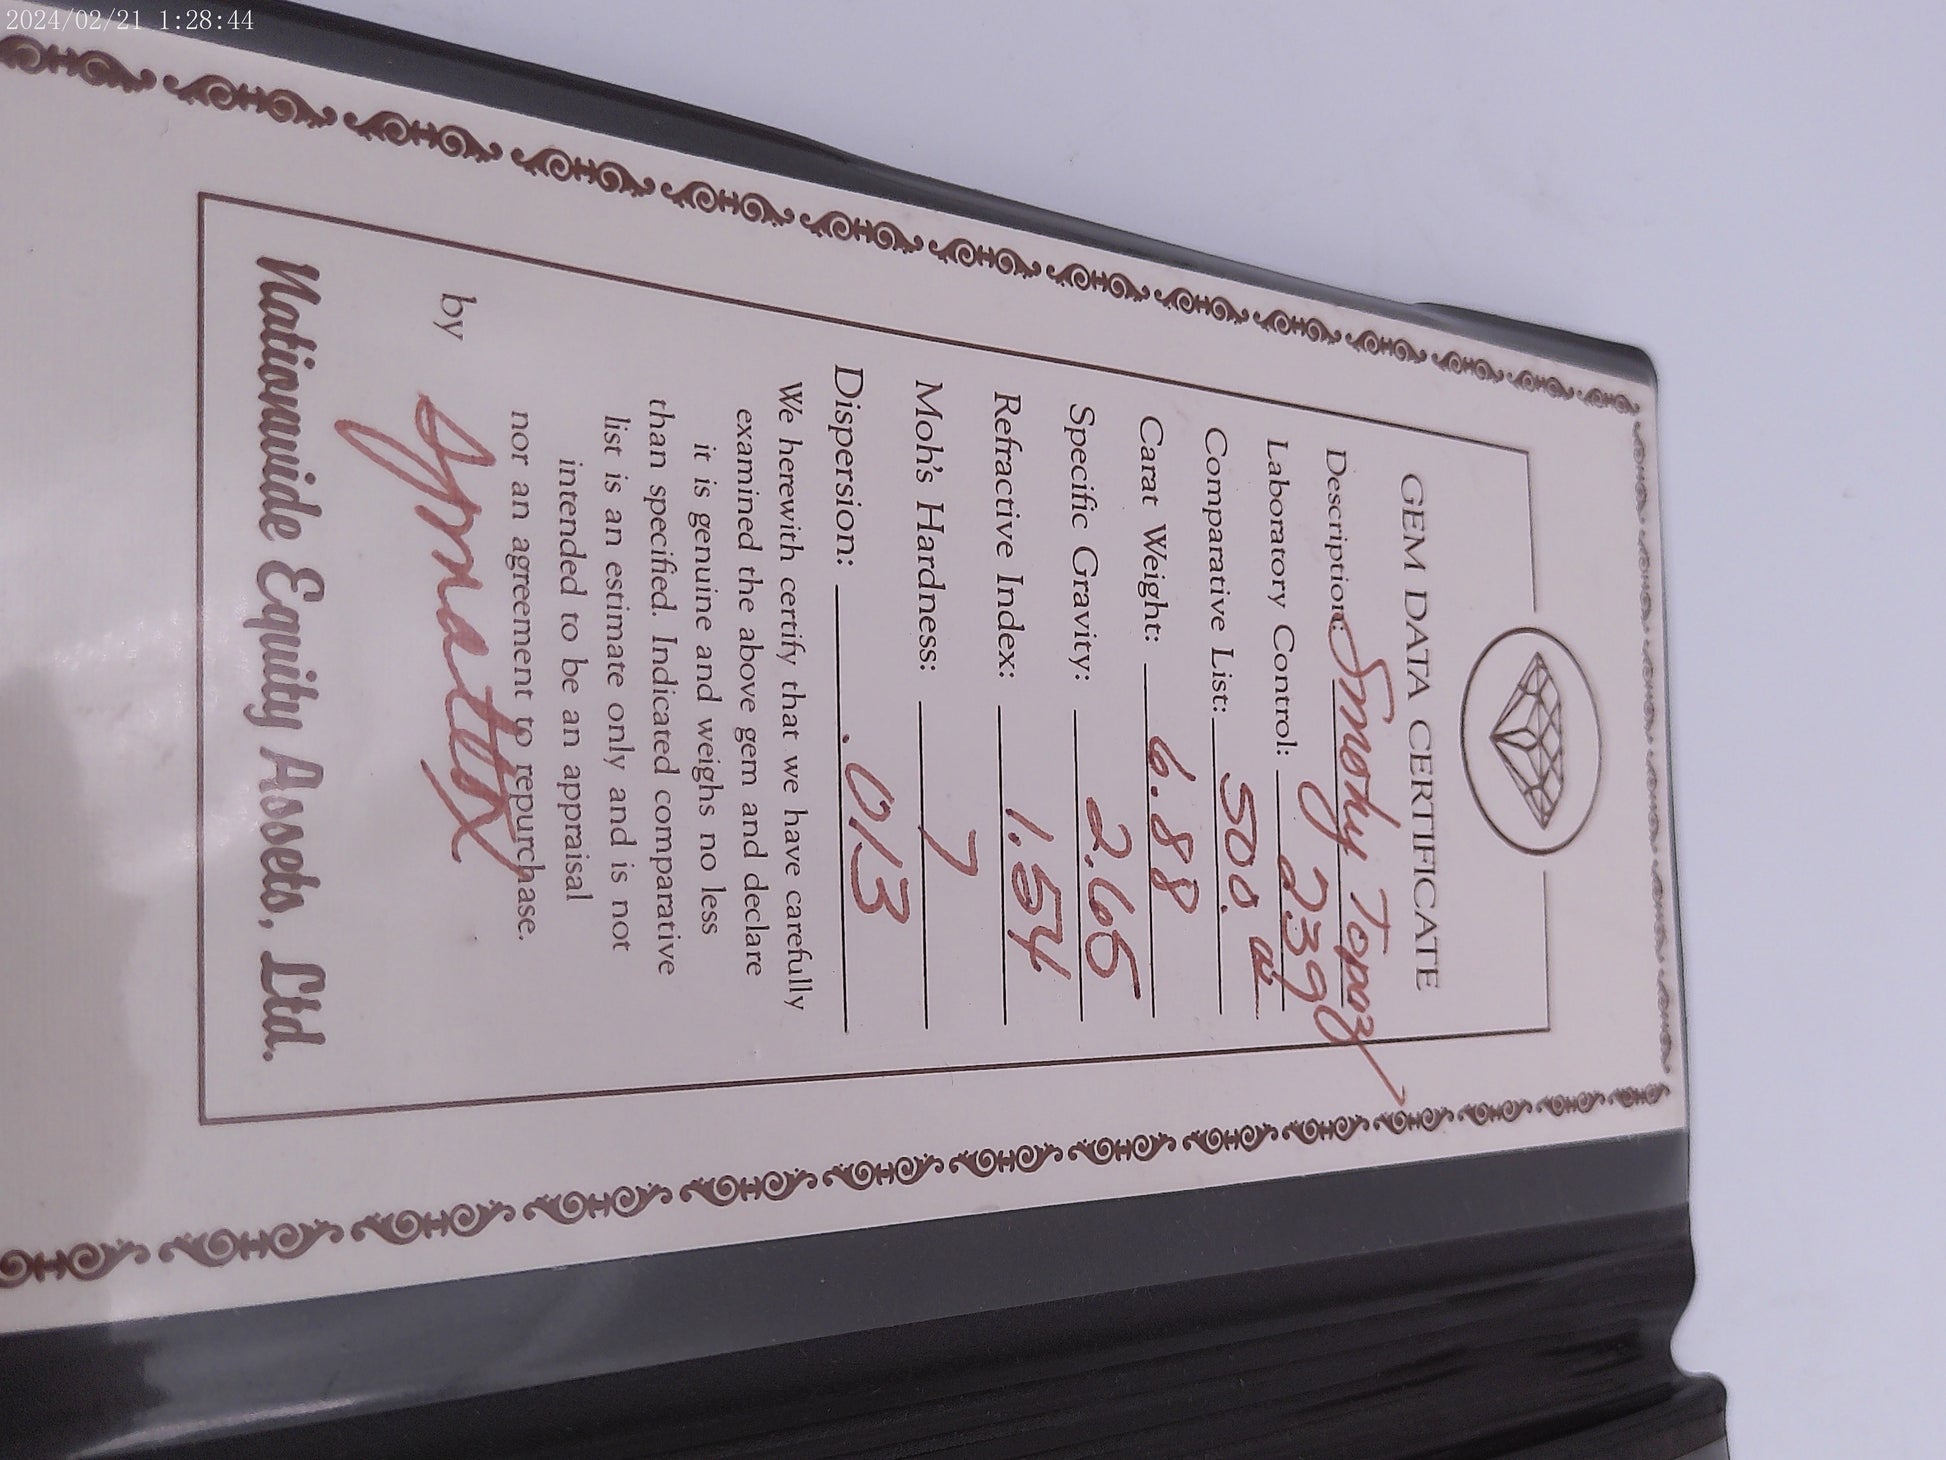 2024/02/21 1:28:44
GEM DATA CERTIFICATE
Description: Smoky Topaz
Laboratory Control: 2390
Comparative List: 500.
Carat Weight: 6.88
Specific Gravity: 2.65
Refractive Index: 1.54
Moh's Hardness: 7
Dispersion: .013
We herewith certify that we have carefully
examined the above gem and declare
it is genuine and weighs no less
than specified. Indicated comparative
list is an estimate only and is not
intended to be an appraisal
nor an agreement to repurchase.
by
Nationwide Equity Assets, Ltd.